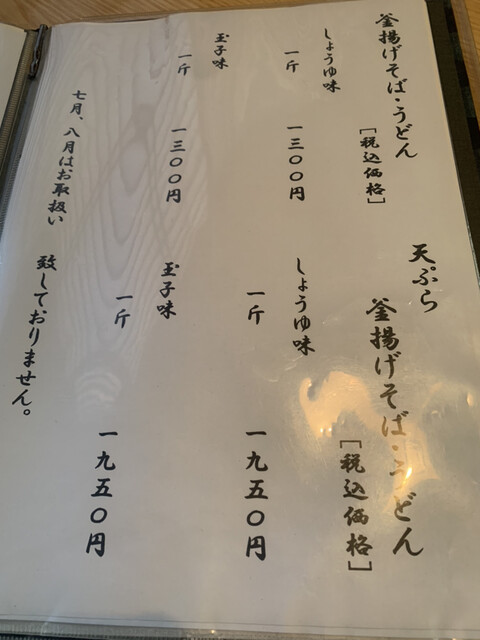 釜揚げそば・うどん
[税込価格]
しょうゆ味
一斤
一三〇〇円
玉子味
一斤
一三〇〇円
天ぷら
釜揚げそば・うどん
[税込価格]
しょうゆ味
一斤
一九五〇円
玉子味
一斤
一九五〇円
七月、八月はお取扱い
致しておりません。